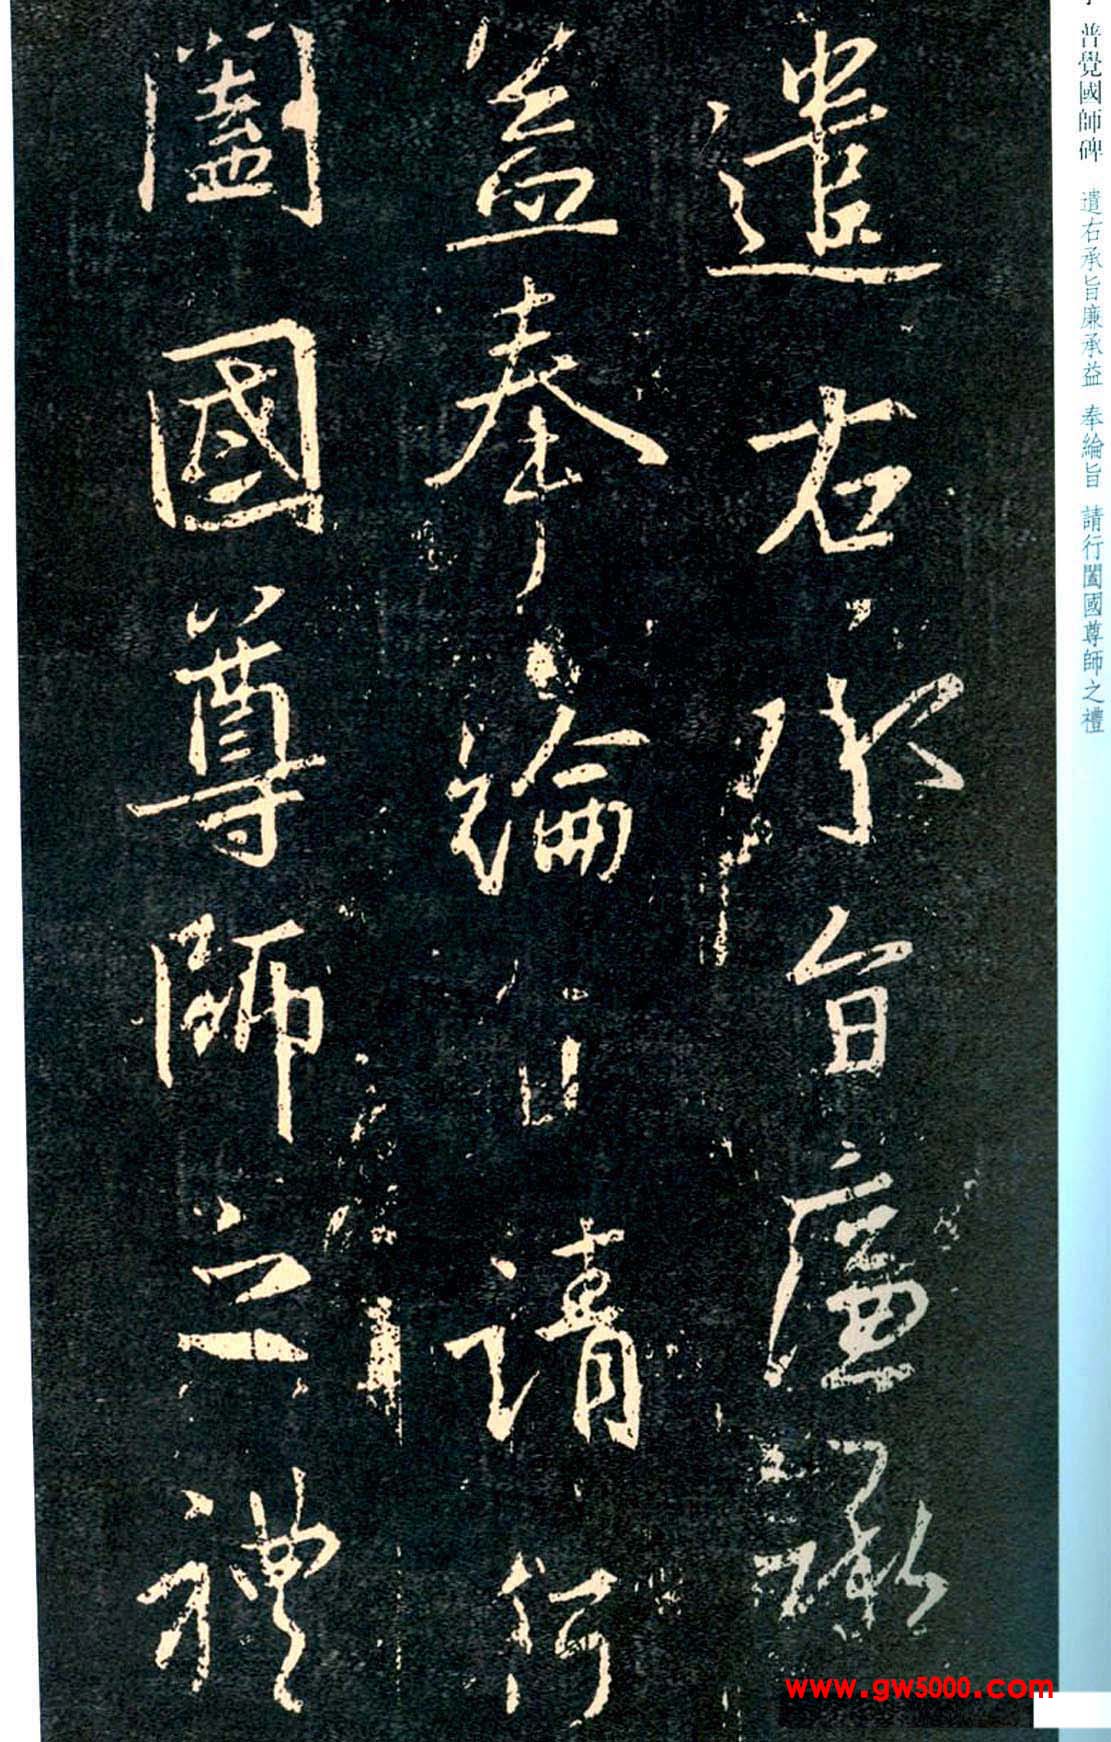 遣右承旨廉承
益奉綸旨請行
闔國尊師之禮
普覺國師碑 遣右承旨廉承益 奉綸旨 請行闔國尊師之禮
www.gw5000.com